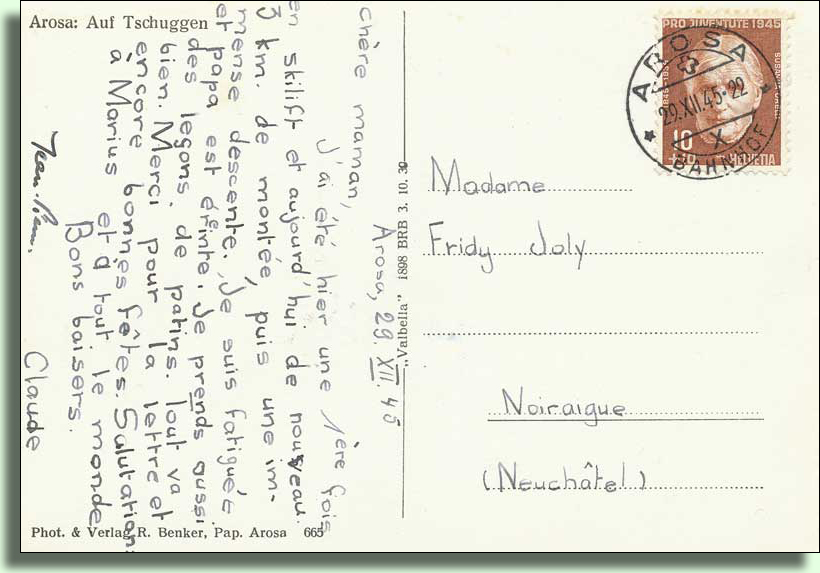 Arosa: Auf Tschuggen
Arosa, 29. XII. 45
chère maman,
J'ai été hier une 1ère fois
en skilift et aujourd'hui de nouveau.
3 km. de montée, puis une im-
mense descente. Je suis fatiguée
et papa est éreinté. Je prends aussi
des leçons de patins. Tout va
bien. Merci pour la lettre et
encore bonnes fêtes. Salutations
à Marius et à tout le monde
Bons baisers.
Claude
Phot. & Verlag R. Benker, Pap. Arosa 665
„Valbella" 1898 BRB 3. 10. 39
PRO JUVENTUTE 1945
10
HELVETIA
AROSA
29.XII.45·22
X
BAHNHOF
Madame
Fridy Joly
Noiraigue
(Neuchâtel)